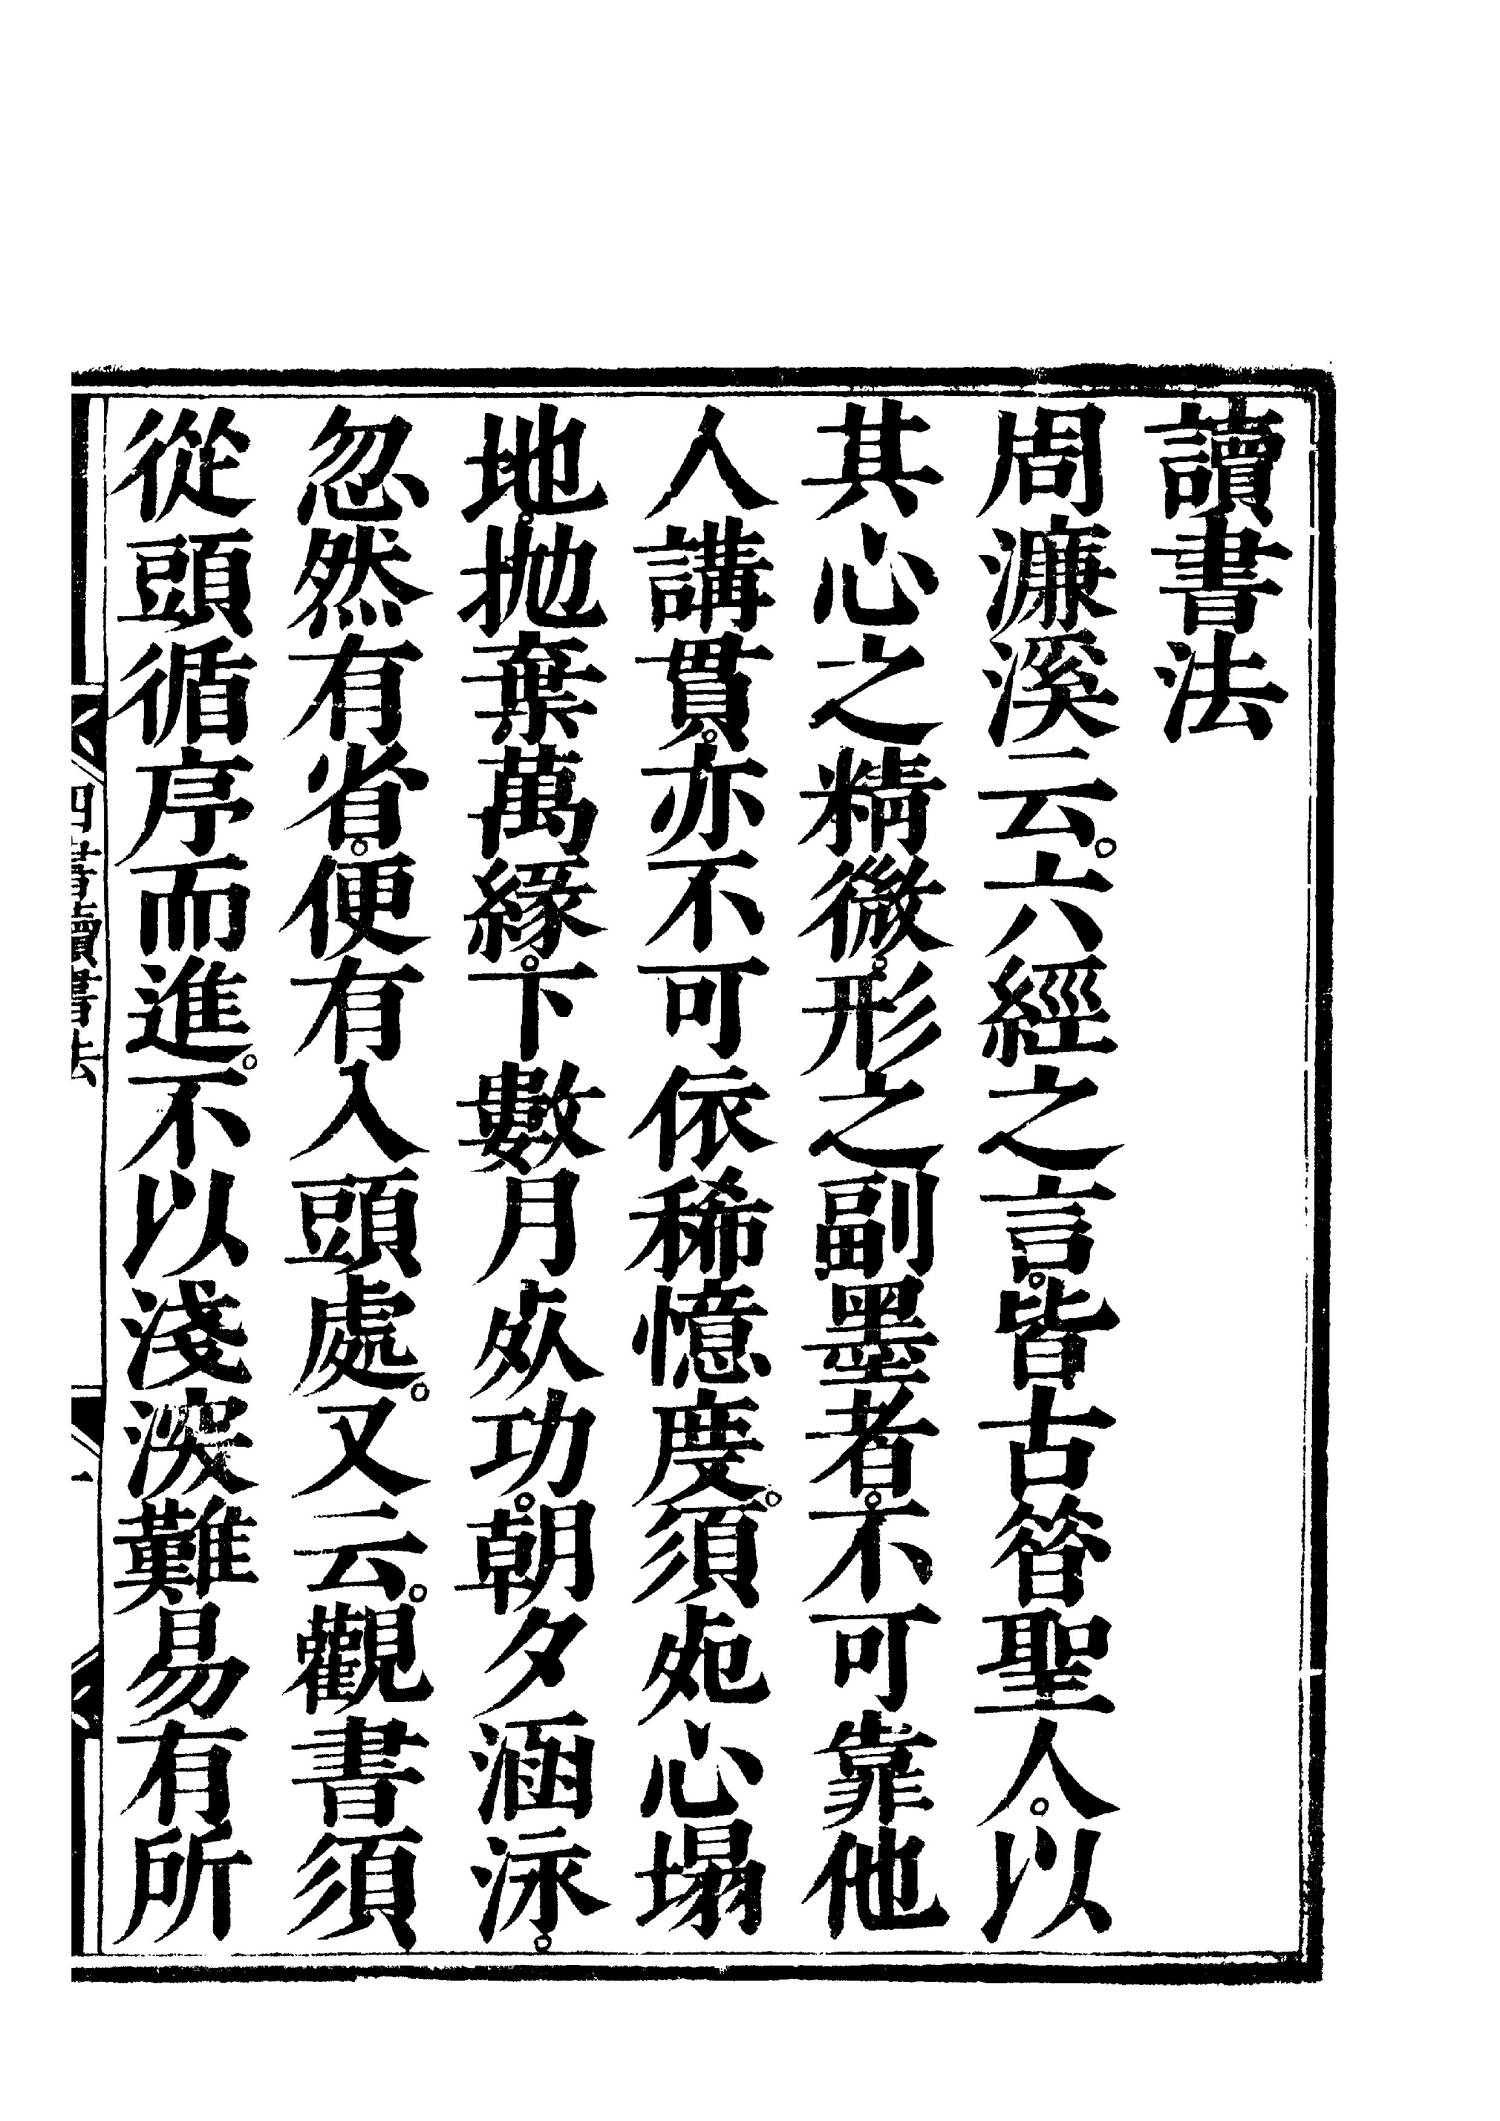 讀書法
周濂溪云。六經之言。皆古昝聖人。以
其心之精微。形之副墨者。不可靠他
人講貫。亦不可依稀憶度。須𣦸心塌
地。抛棄萬緣。下數月𣦸功。朝夕涵泳。
忽然有省。便有入頭處。又云。觀書須
從頭循序而進。不以淺深難易有所
四書讀書法
一